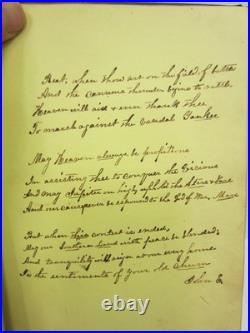 Heat, when thou art on the field of battle
And the cannons thunder trying to rattle
Heaven will aid & even thank thee
To march against the vandal Yankee
May Heaven always be propitious
In assisting thee to conquer the vicious
And may Jupiter on high uphold the
And our be to the God of War, Mars
But when this contest is ended,
May our Southern land with peace be blended,
And tranquility reign at our every
Is the sentiments of your old chum
John E.